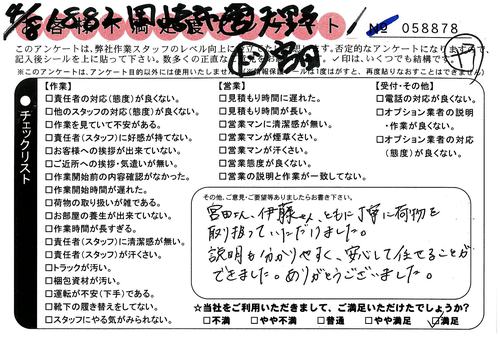 お客様不満足度アンケート
№ 058878
このアンケートは、弊社作業スタッフのレベル向上に
否定的なアンケートになりますので、
記入後シールを上に貼って下さい。数多くの正直な
✓印は、いくつでも結構です。
※このアンケートは、アンケート目的以外には使用いたしません。(※情報保護シールは1度はがすと、再度貼りなおすことはできません)
チェックリスト
【作業】
□責任者の対応(態度)が良くない。
□他のスタッフの対応(態度)が良くない。
□作業を見ていて不安がある。
□責任者(スタッフ)に好感が持てない。
□お客様への挨拶が出来ていない。
□ご近所への挨拶・気遣いが無い。
□作業開始前の内容確認がなかった。
□作業開始時間が遅れた。
□荷物の取り扱いが雑である。
□お部屋の養生が出来ていない。
□作業時間が長すぎる。
□責任者(スタッフ)に清潔感が無い。
□責任者(スタッフ)が汗くさい。
□トラックが汚い。
□梱包資材が汚い。
□運転が不安(下手)である。
□靴下の履き替えをしてない。
□スタッフにやる気がみられない。
【営業】
□見積もり時間に遅れた。
□見積もり時間が長い。
□営業マンに清潔感が無い。
□営業マンが煙草くさい。
□営業マンが汗くさい。
□営業態度が良くない。
□営業の説明と作業が一致してない。
【受付・その他】
□電話の対応が良くない。
□オプション業者の説明
・作業が良くない。
□オプション業者の対応
(態度)が良くない。
その他、ご意見・ご要望等ありましたらお書き下さい。
宮田さん、伊藤さん、ともに丁寧に荷物を
取り扱っていただけました。
説明も分かりやすく、安心して任せることが
できました。ありがとうございました。
☆当社をご利用いただきまして、ご満足いただけたでしょうか?
□不満 □やや不満 □普通 □やや満足 ☑満足